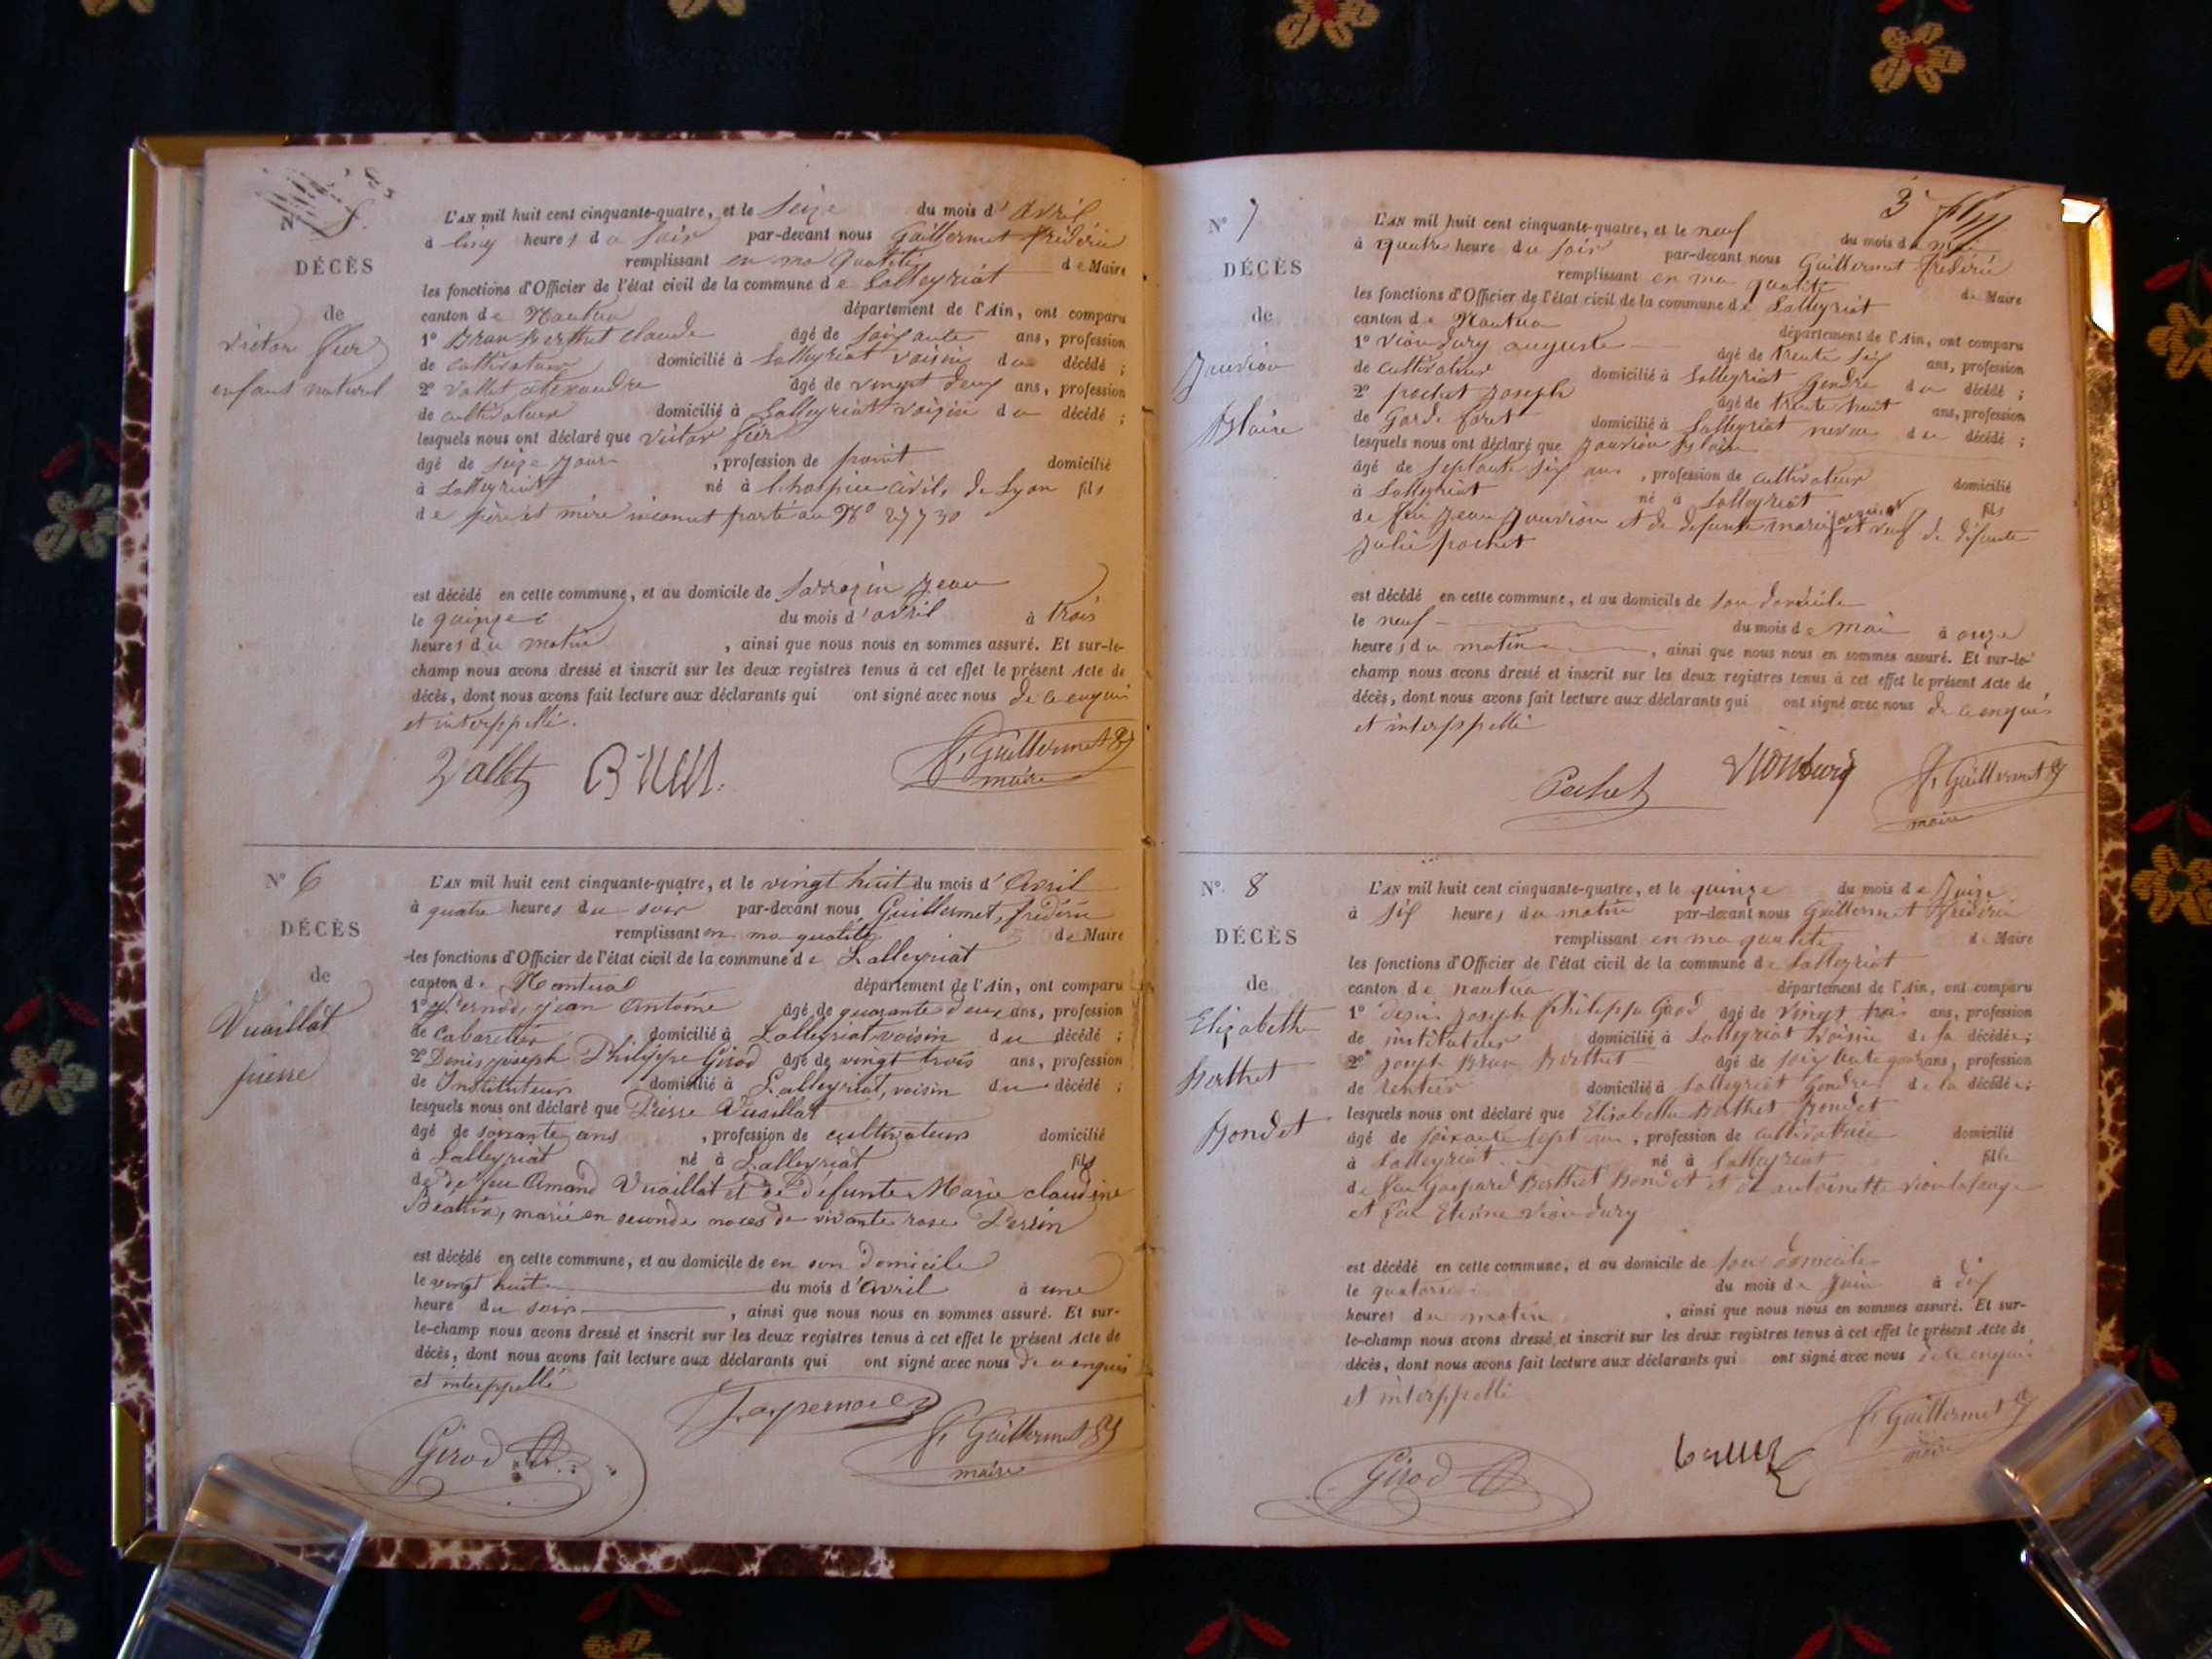 N° 5.
DÉCÈS
de
victor fier
enfant naturel
L'AN mil huit cent cinquante-quatre, et le Seize du mois d'Avril
à Cinq heures du Soir par-devant nous Guillermet frédéric
remplissant en ma qualité de Maire
les fonctions d'Officier de l'état civil de la commune de Lalleyriat
canton de Nantua département de l'Ain, ont comparu
1° Brun berthet claude âgé de soixante ans, profession
de cultivateur domicilié à Lalleyriat voisin du décédé ;
2° Vallet alexandre âgé de vingt deux ans, profession
de cultivateur domicilié à Lalleyriat voisin du décédé ;
lesquels nous ont déclaré que victor fier
âgé de seize jours , profession de point domicilié
à Lalleyriat né à l'hospice civil, de Lyon fils
de père et mère inconnut porté au N° 27730
est décédé en cette commune, et au domicile de Sarrazin jean
le quinze du mois d'avril à trois
heures du matin , ainsi que nous nous en sommes assuré. Et sur-le-
champ nous avons dressé et inscrit sur les deux registres tenus à cet effet le présent Acte de
décès, dont nous avons fait lecture aux déclarants qui ont signé avec nous de ce enquis
et interppellé.
Vallet Brun f, Guillermet
maire
N° 6
DÉCÈS
de
Vuaillat
pierre
L'AN mil huit cent cinquante-quatre, et le vingt huit du mois d'Avril
à quatre heures du soir par-devant nous Guillermet, frédéric
remplissant en ma qualité de Maire
les fonctions d'Officier de l'état civil de la commune de Lalleyriat
canton de Nantua département de l'Ain, ont comparu
1° Pernod, jean Antoine âgé de quarante deux ans, profession
de cabaretier domicilié à Lalleyriat voisin du décédé ;
2° Denis joseph Philippe Girod âgé de vingt trois ans, profession
de Instituteur domicilié à Lalleyriat, voisin du décédé ;
lesquels nous ont déclaré que Pierre Vuaillat
âgé de soixante ans , profession de cultivateur domicilié
à Lalleyriat né à Lalleyriat fils
de de feu Amand Vuaillat et de défunte Marie claudine
Béatrix, marié en seconde noces de vivante rose Perrin
est décédé en cette commune, et au domicile de en son domicile
le vingt huit du mois d'avril à une
heure du soir , ainsi que nous nous en sommes assuré. Et sur-
le-champ nous avons dressé et inscrit sur les deux registres tenus à cet effet le présent Acte de
décès, dont nous avons fait lecture aux déclarants qui ont signé avec nous de ce enquis
et interppellé
Girod J. a. pernod f, Guillermet
maire
3
N° 7
DÉCÈS
de
Jouvion
Blaise
L'AN mil huit cent cinquante-quatre, et le neuf du mois de mai
à quatre heure du soir par-devant nous Guillermet frédéric
remplissant en ma qualité de Maire
les fonctions d'Officier de l'état civil de la commune de Lalleyriat
canton de Nantua département de l'Ain, ont comparu
1° Vioudury auguste âgé de trente six ans, profession
de cultivateur domicilié à Lalleyriat Gendre du décédé ;
2° pochet joseph âgé de trente huit ans, profession
de Garde foret domicilié à Lalleyriat neveu du décédé ;
lesquels nous ont déclaré que Jouvion Blaise
âgé de septante six ans , profession de cultivateur domicilié
à Lalleyriat né à Lalleyriat fils
de feu jean jouvion et de defunte marie et veuf de défunte
julie pochet
est décédé en cette commune, et au domicile de son domicile
le neuf du mois de mai à onze
heures du matin , ainsi que nous nous en sommes assuré. Et sur-le-
champ nous avons dressé et inscrit sur les deux registres tenus à cet effet le présent Acte de
décès, dont nous avons fait lecture aux déclarants qui ont signé avec nous de ce enquis
et interppellé
Pochet Vioudury f, Guillermet
maire
N° 8
DÉCÈS
de
Elizabeth
Berthet
Bondet
L'AN mil huit cent cinquante-quatre, et le quinze du mois de Juin
à six heures du matin par-devant nous Guillermet frédéric
remplissant en ma qualité de Maire
les fonctions d'Officier de l'état civil de la commune de Lalleyriat
canton de nantua département de l'Ain, ont comparu
1° denis joseph philippe Girod âgé de vingt trois ans, profession
de instituteur domicilié à Lalleyriat voisin de la décédée ;
2° joseph Brun Berthet âgé de ans, profession
de rentier domicilié à Lalleyriat Gendre de la décédée ;
lesquels nous ont déclaré que Elisabeth Berthet Bondet
âgé de soixante sept ans , profession de cultivatrice domicilié
à Lalleyriat né à Lalleyriat fille
de feu Gaspard Berthet Bondet et de antoinette
et feu Etienne Vioudury
est décédé en cette commune, et au domicile de son domicile
le quatorze du mois de Juin à dix
heures du matin , ainsi que nous nous en sommes assuré. Et sur-
le-champ nous avons dressé et inscrit sur les deux registres tenus à cet effet le présent Acte de
décès, dont nous avons fait lecture aux déclarants qui ont signé avec nous de ce enquis
et interppellé
Girod brun f, Guillermet
maire